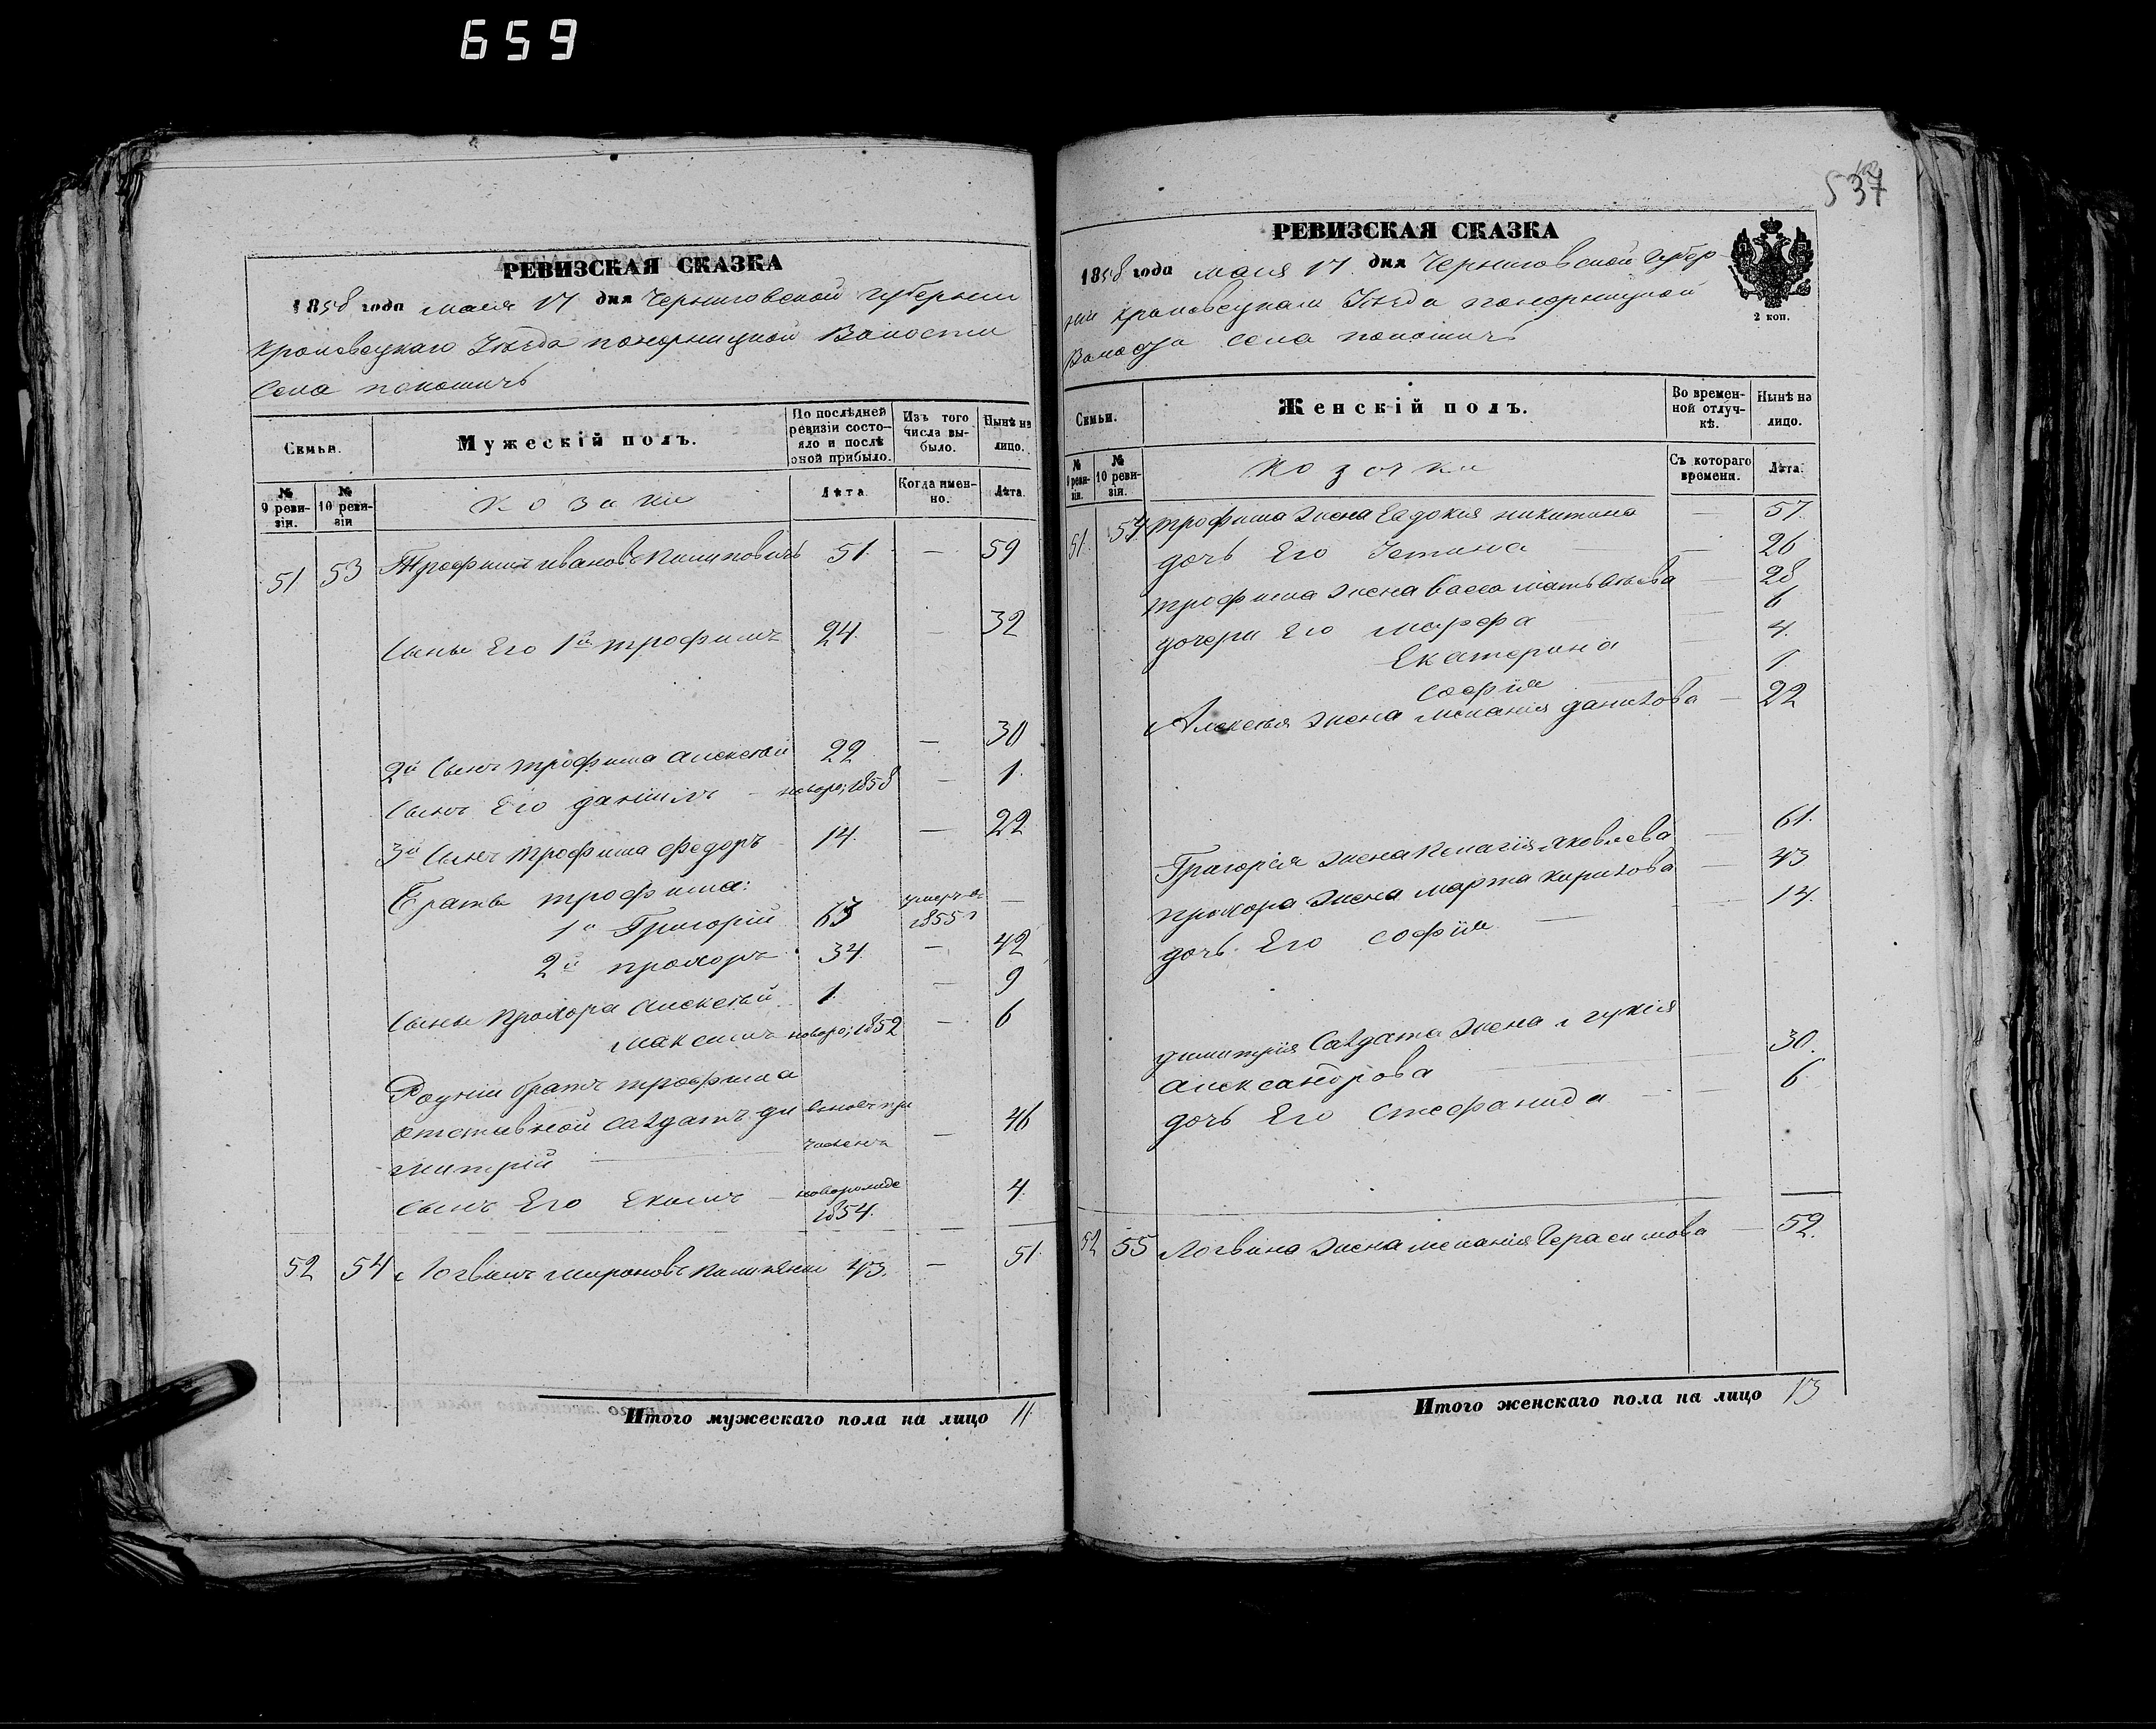 659
РЕВИЗСКАЯ СКАЗКА
1858 года мая 17 дня Черниговской губернии
Кролевецкаго Уѣзда понорницкой Волости
Села покошичь
Семьи.
Мужескій полъ.
По послѣдней ревизіи состояло и послѣ оной прибыло.
Изъ того числа выбыло.
Нынѣ на лицо.
№ 9 ревизіи.
№ 10 ревизіи
козаки
Лѣта.
Когда именно.
Лѣта.
51 53 Трофимъ ивановъ 51. — 59
Сыны Его 1й трофимъ 24. — 32
2й Сынъ трофима алексѣй 22 — 30
Сынъ Его даніилъ — новоро; 1858 — 1.
3й Сынъ трофима федоръ 14. — 22
Браты трофима:
1й Григорій 63 умеръ въ 1855 г —
2й прохоръ 34. — 42
Сыны прохора алексѣй 1. — 9
Максимъ новоро; 1852 — 6
Родній братъ трофима
отставной салдатъ ди вновь при
митрій — численъ — 46
сынъ Его Екимъ — новорожде 1854. 4.
52 54 Логвинъ мироновъ 43. — 51.
Итого мужескаго пола на лицо 11.
537
РЕВИЗСКАЯ СКАЗКА
1858 года мая 17 дня Черниговской губер
ніи кролевецкаго Уѣзда понорницкой
Волости села покошичь
2 коп.
Семьи.
Женскій полъ.
Во временной отлучкѣ.
Нынѣ на лицо.
№ 9 ревизіи.
№ 10 ревизіи.
козачки
Съ котораго времени.
Лѣта.
51. 54 трофима жена Евдокия никитина — 57.
дочь Его Устина — 26
трофима жена Васса матвѣева — 28
дочери Его марфа — 6
Екатерина — 4.
софія — 1.
Алексѣя жена меланія данилова — 22
Григорія жена пелагія яковлева — 61.
прохора жена марта кирилова — 43
дочь Его софія — 14.
димитрія Салдата жена лукія
александрова — 30.
дочь Его стефанида — 6
52 55 Логвина жена меланія Герасимова — 52.
Итого женскаго пола на лицо 13